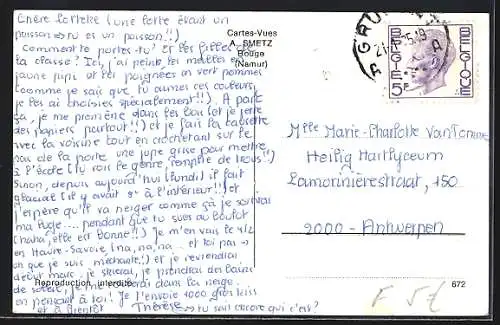 Chère Lotteke (une lotte étant un
poisson → tu es un poisson!!)
Comment te portes-tu? Et les filles de
la classe? Ici, j'ai peint les meubles en
jaune pipi et les poignées en vert pommes
(comme je sais que tu aimes ces couleurs,
je les ai choisies spécialement!!). A part
ça, je me promène dans les bois (et je jette
des papiers partout!!) et je fait la causette
avec la voisine tout en crochetant sur le
pas de la porte une jupe grise pour mettre
à l'école (tu vois le genre, remplie de trous!!)
Sinon, depuis aujourd'hui (lundi) il fait
glacial (il y avait 8° à l'intérieur!!) et
j'espère qu'il va neiger comme ça je
ma luge.... pendant que tu sues au boulot
(haha, elle est bonne!!) Je m'en vais le 4/2
en Haute-Savoie (na, na, na .. et toi pas →
oh que je suis méchante!!) et je reviendrai
début mars. Je skierai, je prendrai des bains
de soleil, je me dans la neige
en pensant à toi! Je t'envoie 1000 gros kiss
et à bientôt Thérèse → tu sais encore qui c'est?
Cartes-Vues
A. SMETZ
Bouge
(Namur)
BELGIE BELGIQUE
5F
Mlle Marie-Charlotte Van Tomme
Heilig Hartlyceum
Lamorinièrestraat, 150
2000 - Antwerpen
Reproduction interdite
672
F 5€